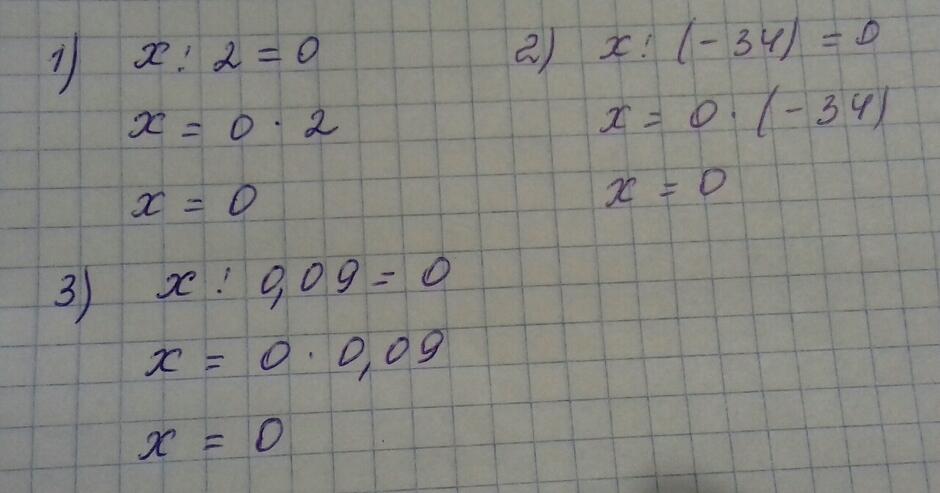 1) x : 2 = 0
x = 0 · 2
x = 0
2) x : (-34) = 0
x = 0 · (-34)
x = 0
3) x : 0,09 = 0
x = 0 · 0,09
x = 0